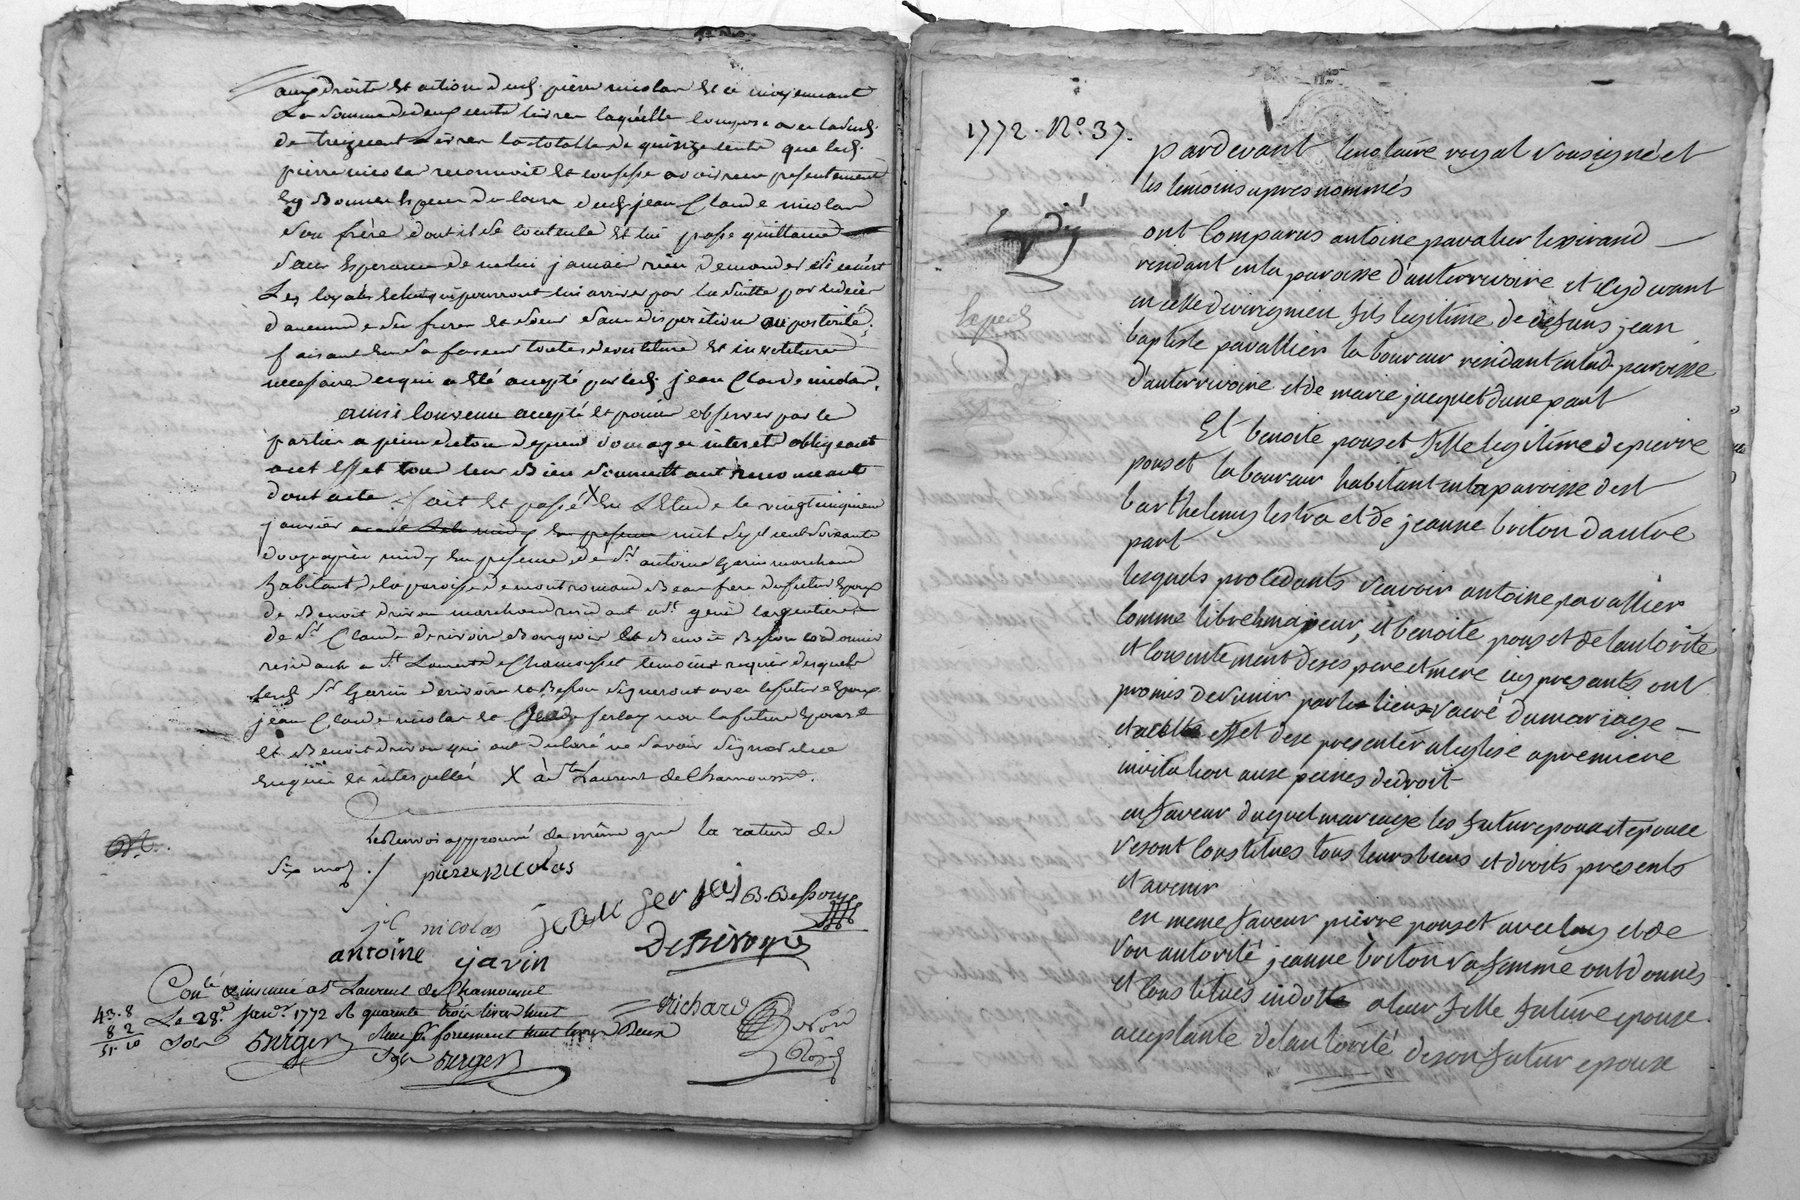 aux droits et actions dud. pierre nicolas et ce moyennant
La somme de deux cents livres laquelle compose avec lad.
de treize cent Livres la totalle de quinze cents que led.
pierre nicolas reconnoit et confesse avoir reçu presentement
en Bonnes Especes du Cours dud. jean Claude nicolas
son frère dont il se contente et lui passe quittance
sans Esperance de ne lui jamais rien demander
Les loyales Echutes qui pourront lui arriver par la suitte par le decès
d'aucun de ses freres et soeur sans disposition ou posterité,
faisant en sa faveur toutes devestiture et investiture
necessaires ce qui a été accepté par led. jean Claude nicolas.
ainsi Convenu accepté et promis observer par les
parties a peine de tous depens domages interets obligeant
a cet effet tous leurs Biens soumettant renonceant
dont acte. fait et passé X En L'Etude le vingt cinquieme
janvier mil sept cent soixante
douze après midy En presence de Sr. antoine garin marchand
habitant de la paroisse de montromand Beau frere du futur Epoux
de Benoit marchand residant a St. genis largentiere
de Sr. Claude derivoire Bourgeois et Benoit Besson cordonnier
residants a St. Laurent de Chamousset temoins requis desquels
led. Sr. garin derivoire et Besson signeront avec le futur Epoux
jean Claude nicolas et non la future Epouse
et Benoit qui ont declaré ne savoir signer de ce
Enquis et interpellés X à St. Laurent de Chamousset.
le Renvoi approuvé de même que la rature de
six mots ./. pierre nicolas
jC nicolas jean B. Besson
antoine garin DeRivoire
Conlé & insinué a St Laurent de Chamousset
43.8 Le 28e. janvr. 1772 R quarante trois livres huit
8 2 sols Berger
51.10 sols Berger
Richard
1772. No. 37.
pardevant le notaire royal soussigné et
les temoins apres nommés
Exp dié
ont Comparus antoine pavalier tisserand
residant en la paroisse d'auterrivoire et cy devant
en celle de fils legitime de defunt jean
baptiste pavallier laboureur residant en lad. paroisse
d'auterrivoire et de marie jacquet d'une part
Et benoite ponset fille legitime de pierre
ponset laboureur habitant en la paroisse de st
barthelemy lestra et de jeanne briton d'autre
part
lesquels procedants savoir antoine pavallier
comme libre & majeur, et benoite ponset de lautorité
et consentement de ses pere et mere icy presents ont
promis de s'unir par les liens sacré du mariage
et a cette effet de se presenter a leglise a premiere
invitation aux peines de droit
en faveur duquel mariage les futur epoux et epouse
se sont constitués tous leurs biens et droits presents
et avenir
en meme faveur pierre ponset avec luy et de
son autorité jeanne briton sa femme ont donnés
et constitués en dotte a leur fille future epouse
acceptante de l'autorité de son futur epoux